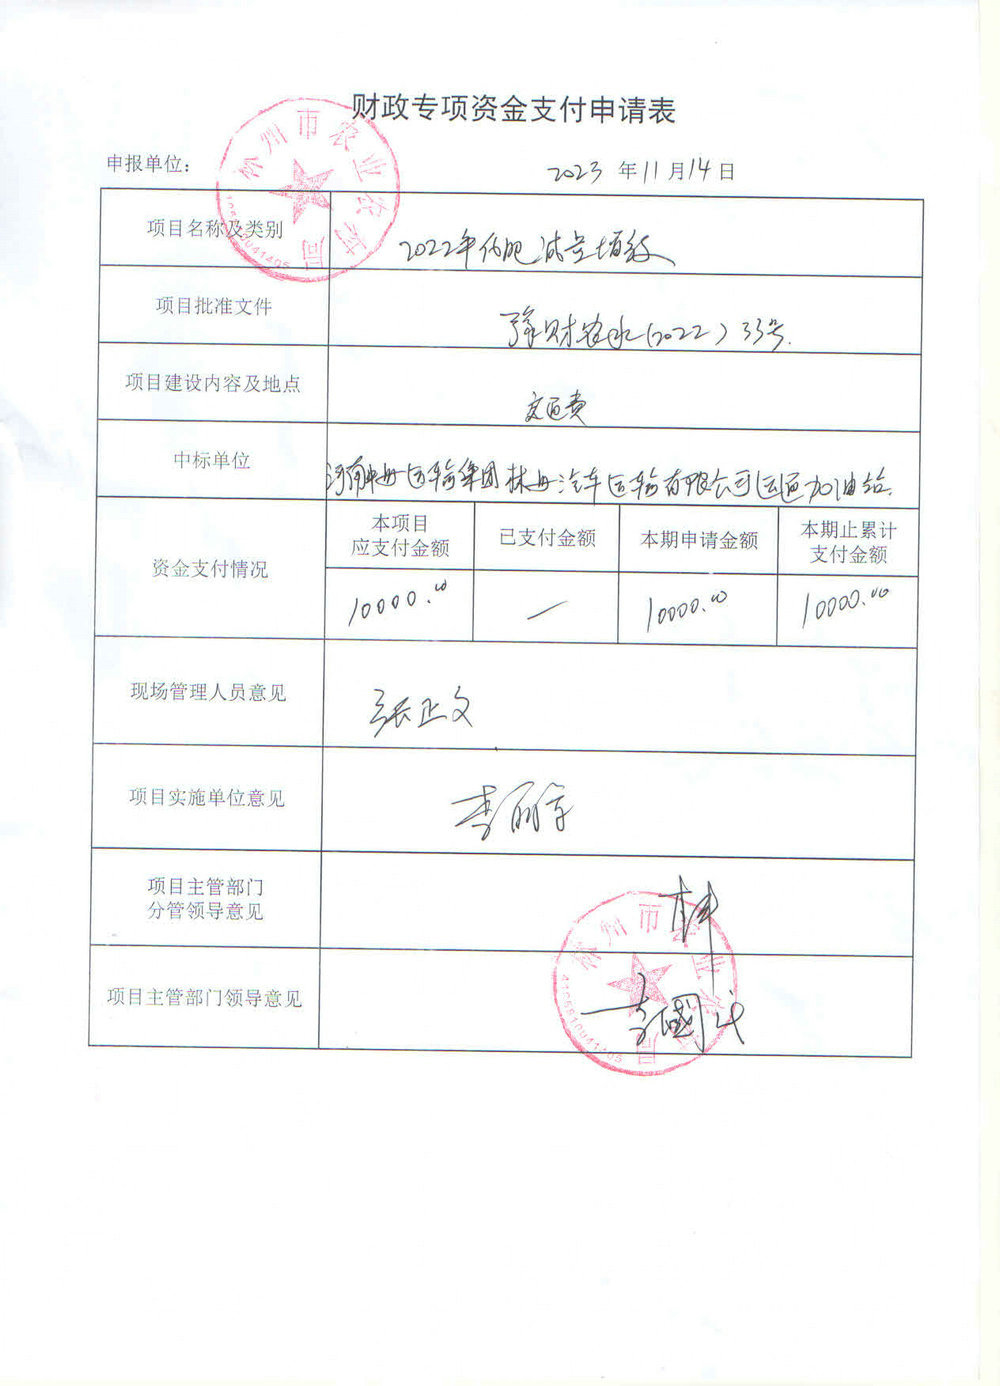 财政专项资金支付申请表
林州市农业农村局
申报单位：
2023 年 11 月 14 日
项目名称及类别
2022年化肥减量增效
项目批准文件
财农水(2022)33号.
项目建设内容及地点
交通费
中标单位
河南中州运输集团林州汽车运输有限公司运通加油站.
资金支付情况
本项目
应支付金额
已支付金额
本期申请金额
本期止累计
支付金额
10000.00
—
10000.00
10000.00
现场管理人员意见
张正文
项目实施单位意见
李丽
项目主管部门
分管领导意见
林州市农业农村局
项目主管部门领导意见
李国